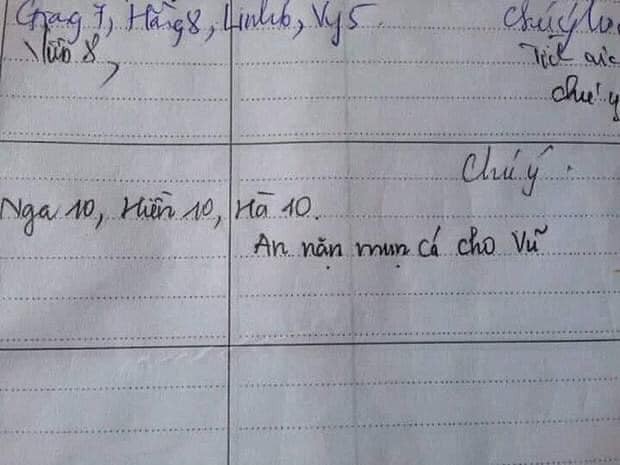 Giang 7, Hằng 8, Linh 6, Vy 5.
8,
Chú ý
Tích cực
chú ý
Chú ý.
Nga 10, Hiền 10, Hà 10.
An nặn mụn cá cho Vũ